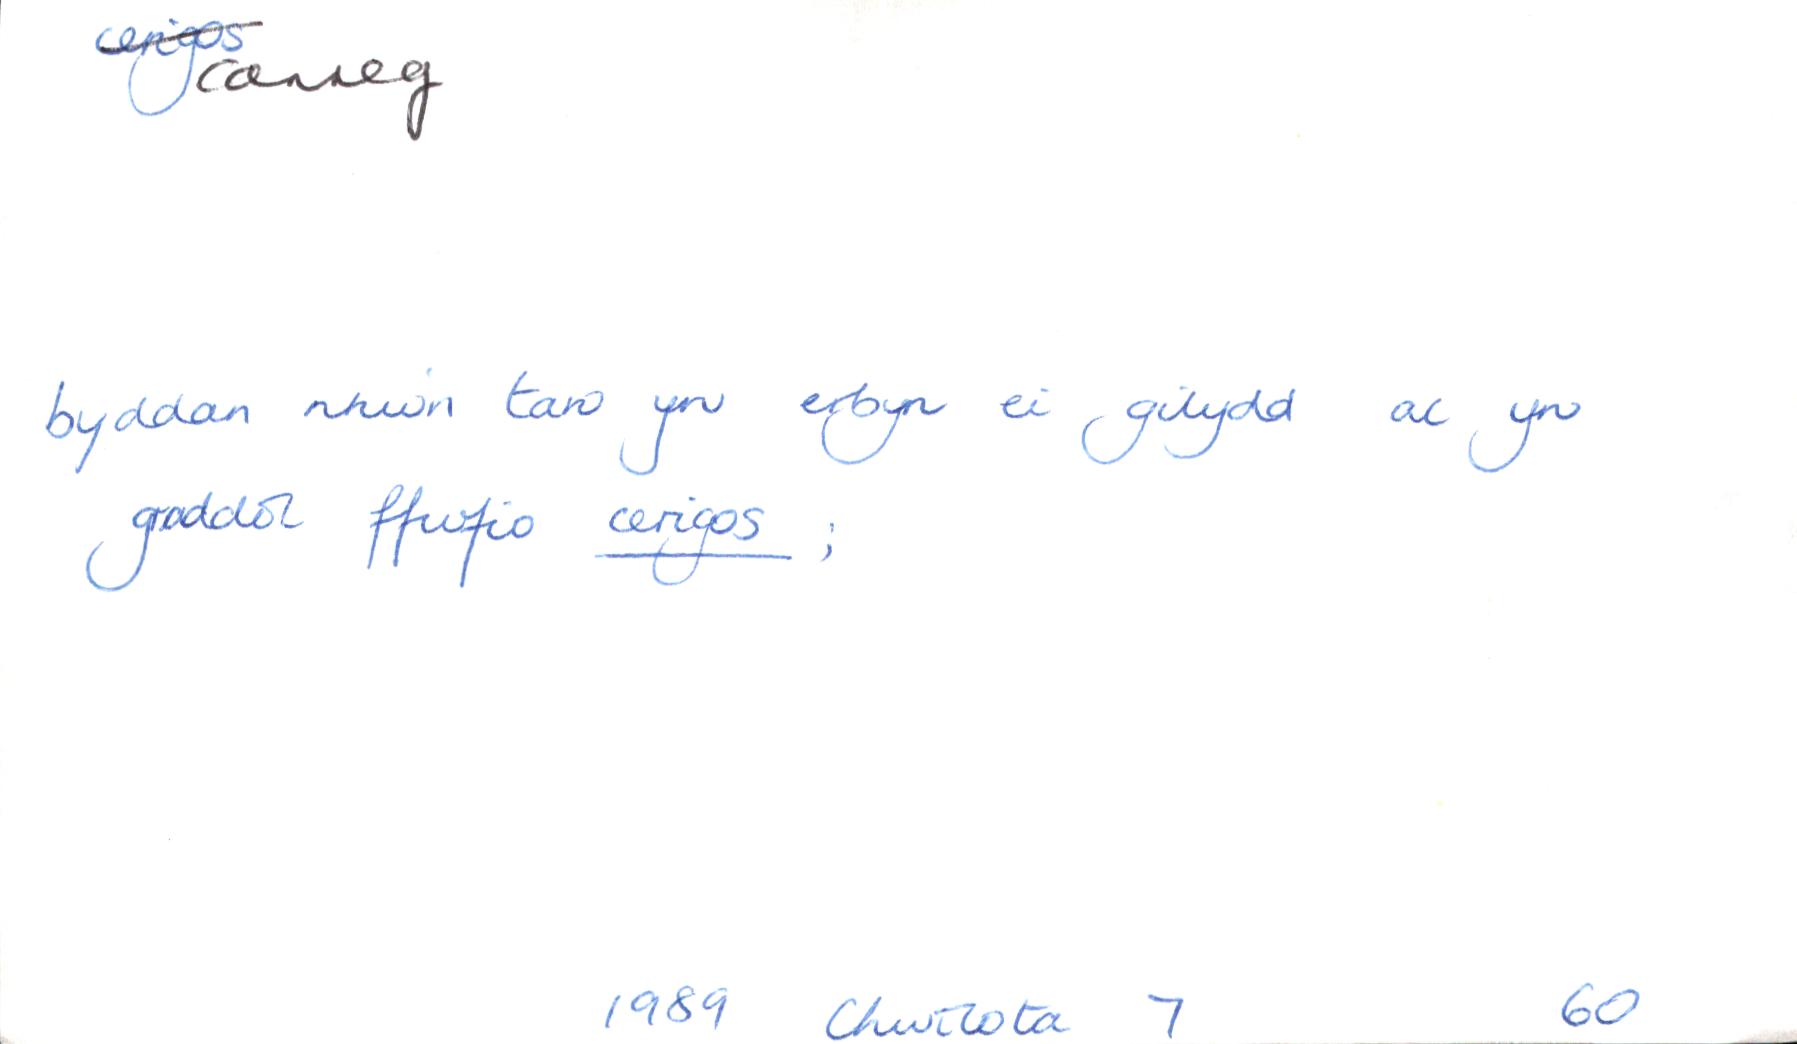 cerigos
carreg
byddan nhw'n taro yn erbyn ei gilydd ac yn
graddol ffurfio cerigos ;
1989 Chwilota 7 60